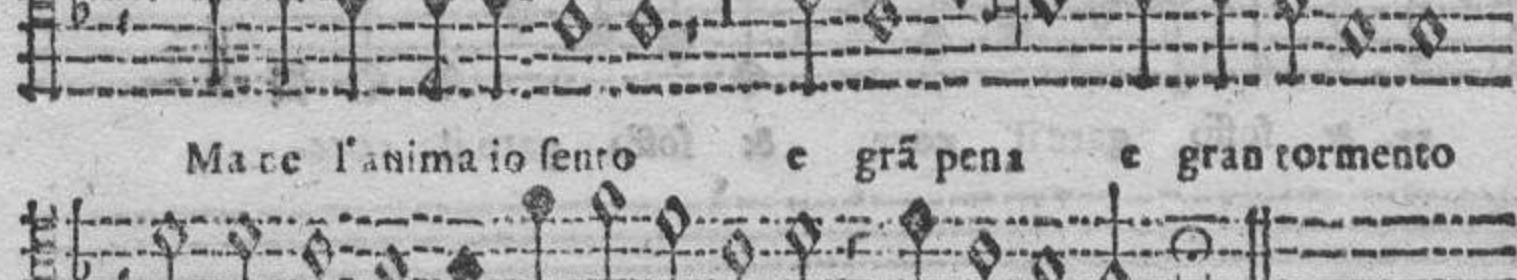 Ma ce l'anima io sento e grã pena e gran tormento